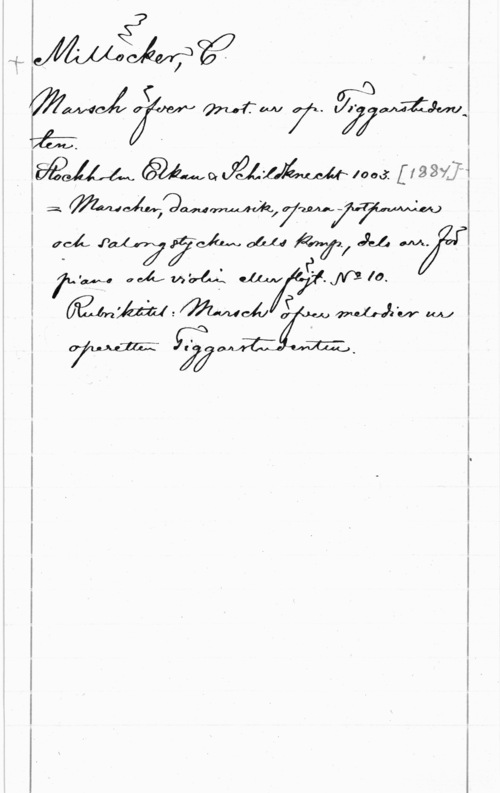 + Millöcker, C
Marsch öfver mot. ur op. Tiggarstuden-
ten.
Stockholm Elkan & Schildknecht 1003. [1884]
= Marscher, dansmusik, opera-potpourrier
och salongstycken dels komp, dels arr. för
piano och violin eller flöjt. No 10.
Rubriktitel: Marsch öfver melodier ur
operetten Tiggarstudenten.